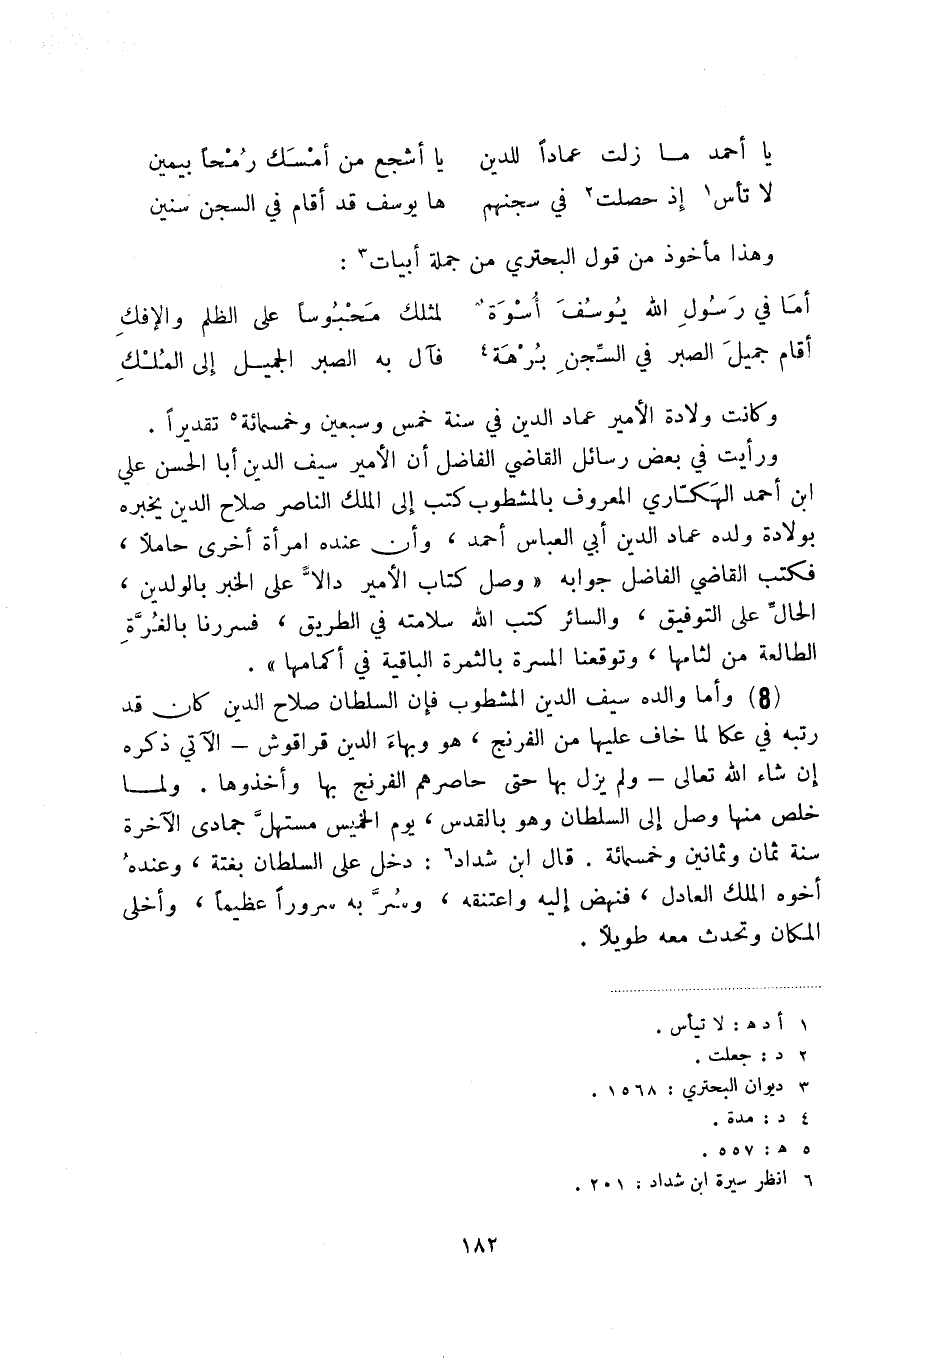 يا أحمد مـا زلت عماداً للدين يا أشجع من أمْسَك رُمْحاً بيمين
لا تأس١ إذ حصلت٢ في سجنهم ها يوسف قد أقام في السجن سنين
وهذا مأخوذ من قول البحتري من جملة أبيات٣ :
أمَا في رَسُولِ الله يُوسُفَ أُسْوَةٌ لمثلك مَحْبُوساً على الظلم والإفكِ
أقام جميلَ الصبر في السِّجنِ بُرْهَة٤ فآل به الصبر الجميـل إلى المُلْكِ
وكانت ولادة الأمير عماد الدين في سنة خمس وسبعين وخمسمائة٥ تقديراً .
ورأيت في بعض رسائل القاضي الفاضل أن الأمير سيف الدين أبا الحسن علي
ابن أحمد الهَكّاري المعروف بالمشطوب كتب إلى الملك الناصر صلاح الدين يخبره
بولادة ولده عماد الدين أبي العباس أحمد ، وأن عنده امرأة أخرى حاملاً ،
فكتب القاضي الفاضل جوابه « وصل كتاب الأمير دالاًّ على الخبر بالولدين ،
الحالّ على التوفيق ، والسائر كتب الله سلامته في الطريق ، فسررنا بالغُرَّةِ
الطالعة من لثامها ، وتوقعنا المسرة بالثمرة الباقية في أكمامها » .
(8) وأما والده سيف الدين المشطوب فإن السلطان صلاح الدين كان قد
رتبه في عكا لما خاف عليها من الفرنج ، هو وبهاءَ الدين قراقوش – الآتي ذكره
إن شاء الله تعالى – ولم يزل بها حتى حاصرهم الفرنج بها وأخذوها . ولمـا
خلص منها وصل إلى السلطان وهو بالقدس ، يوم الخميس مستهلَّ جمادى الآخرة
سنة ثمان وثمانين وخمسمائة . قال ابن شداد٦ : دخل على السلطان بغتة ، وعندهُ
أخوه الملك العادل ، فنهض إليه واعتنقه ، وسُرَّ به سروراً عظيماً ، وأخلى
المكان وتحدث معه طويلاً .
١ أ د ه : لا تيأس .
٢ د : جعلت .
٣ ديوان البحتري : ١٥٦٨ .
٤ د : مدة .
٥ ه : ٥٥٧ .
٦ انظر سيرة ابن شداد : ٢٠١ .
١٨٢